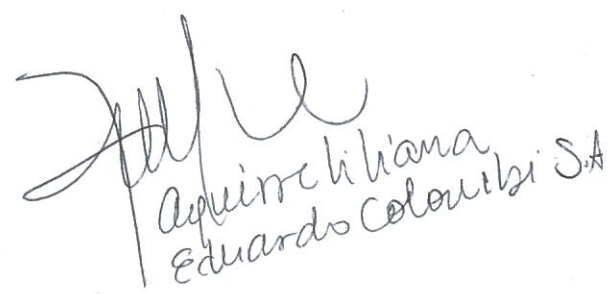 Aguirre Liliana
Eduardo Colombi S.A